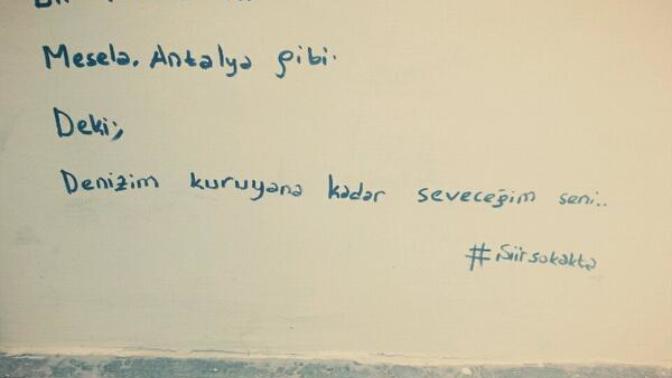 Mesela. Antalya gibi.
Deki;,
Denizim kuruyana kadar seveceğim seni..
#şiirsokakta